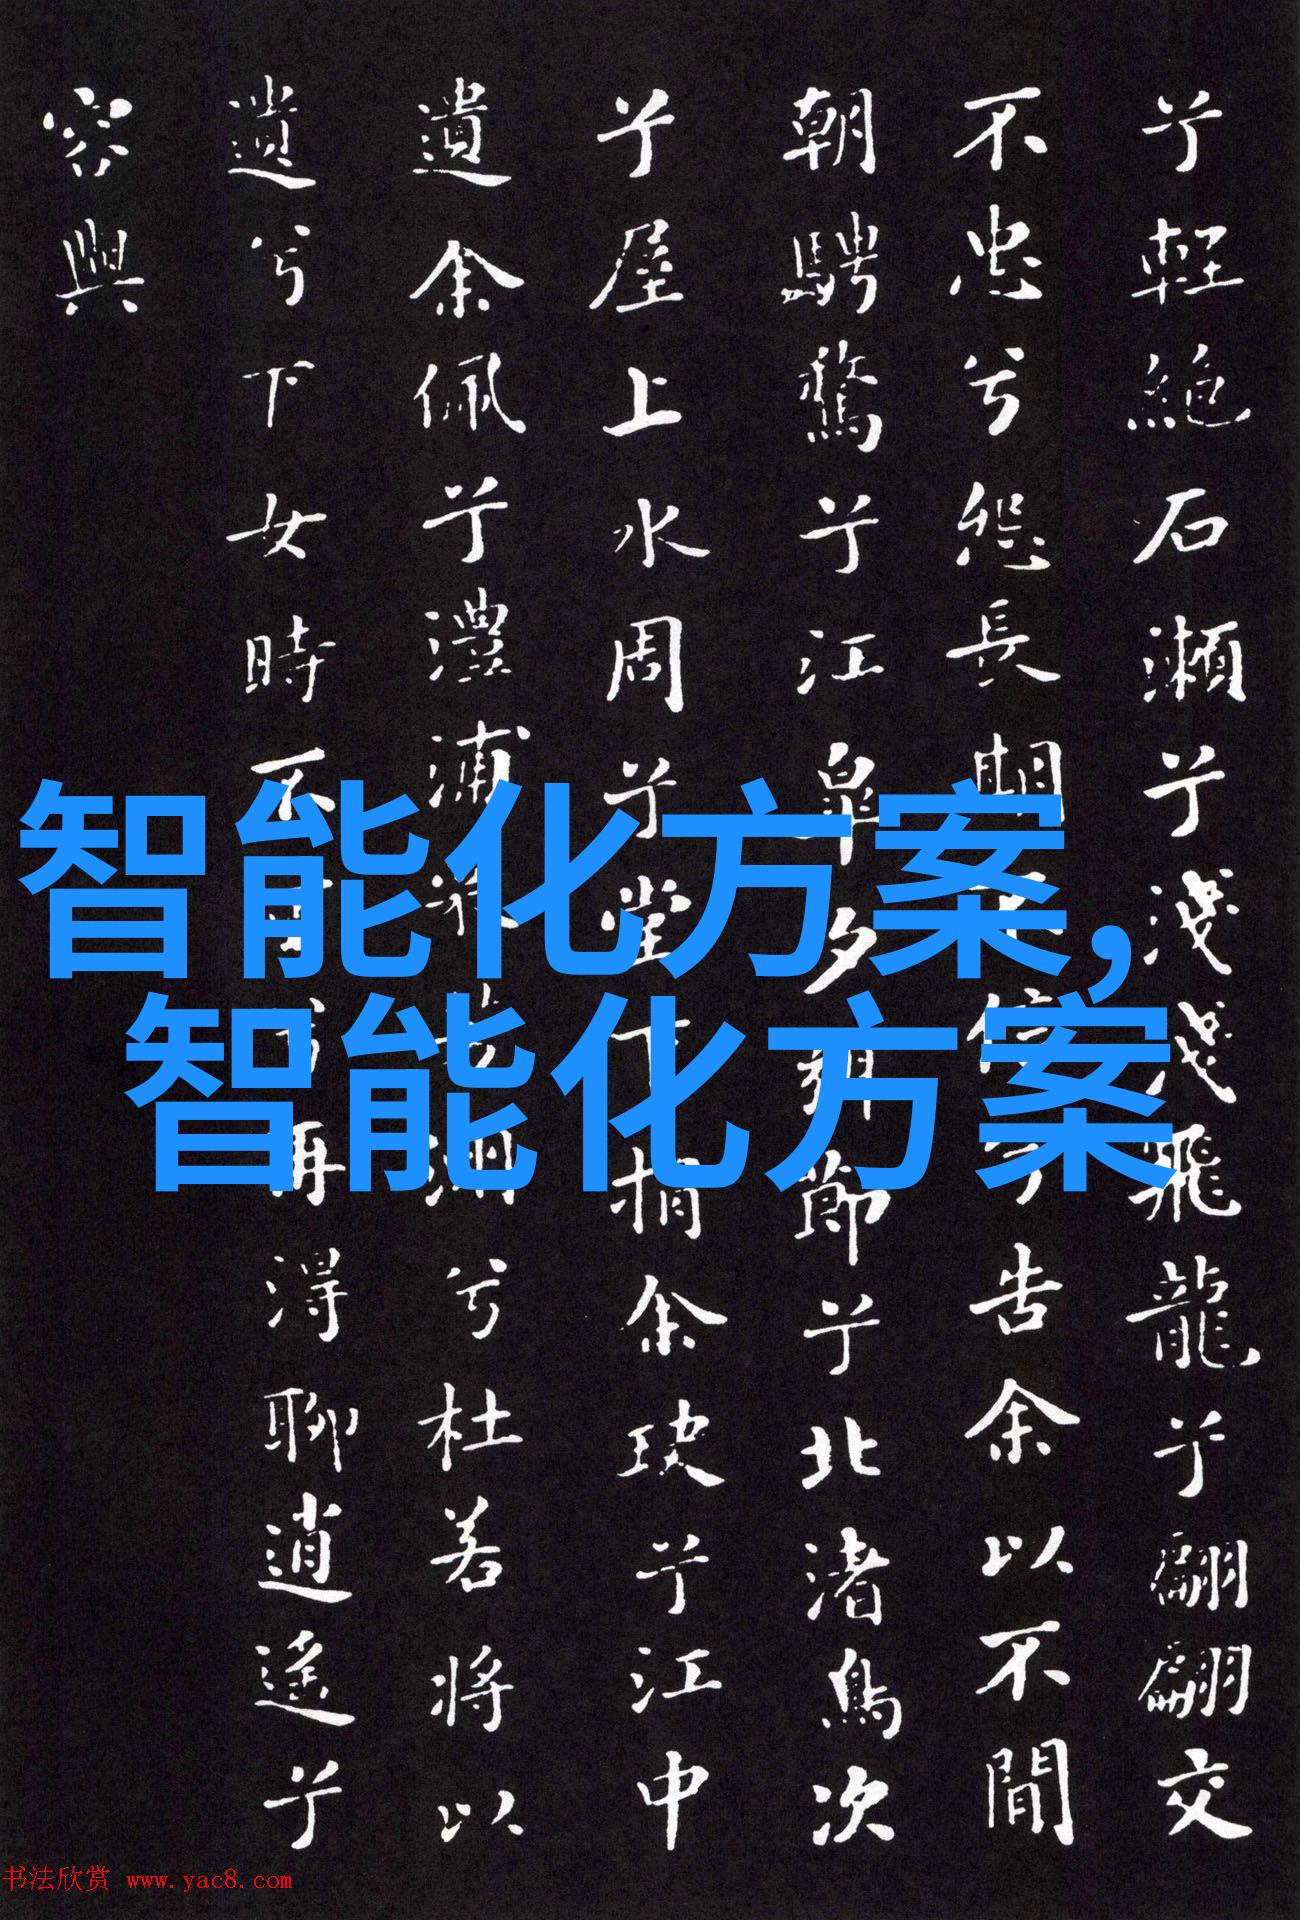 兮輕絕石瀨兮淺淺飛龍兮翩翩交
不忠兮怨長期不信兮告余以不間
朝騁騖兮江皋夕弭節兮北渚鳥次
兮屋上水周兮堂下捐余玦兮江中
遺余佩兮澧浦采芳洲兮杜若將以
遺兮下女時不可兮再得聊逍遙兮
容與
智能化方案,
智能化方案
书法欣赏 www.yac8.com